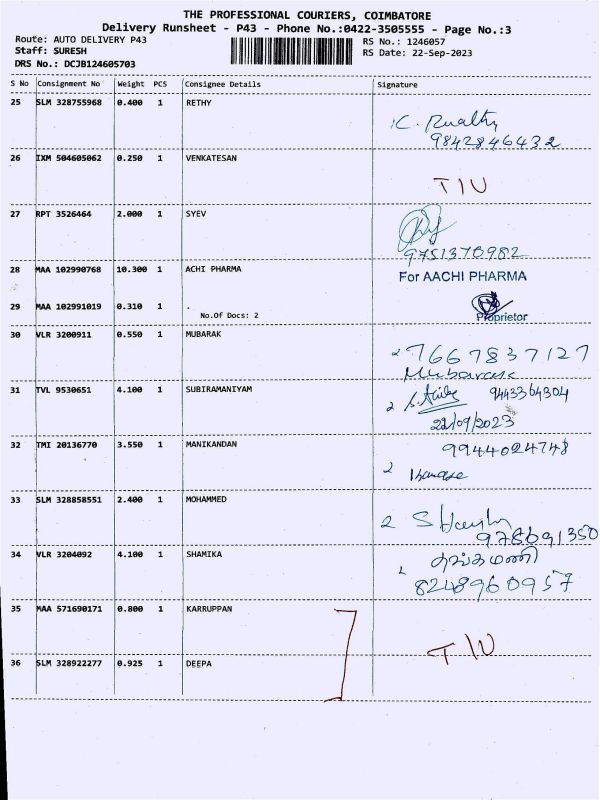 THE PROFESSIONAL COURIERS, COIMBATORE
Delivery Runsheet - P43 - Phone No.:0422-3505555 - Page No.:3
Route: AUTO DELIVERY P43
RS No.: 1246057
Staff: SURESH
RS Date: 22-Sep-2023
DRS No.: DCJB124605703
S No Consignment No Weight PCS Consignee Details Signature
25 SLM 328755968 0.400 1 RETHY
K.
9842846432
26 IXM 504605062 0.250 1 VENKATESAN
T I U
27 RPT 3526464 2.000 1 SYEV
9751370982
28 MAA 102990768 10.300 1 ACHI PHARMA
For AACHI PHARMA
29 MAA 102991019 0.310 1 .
No.Of Docs: 2
Proprietor
30 VLR 3200911 0.550 1 MUBARAK
7667837127
31 TVL 9530651 4.100 1 SUBIRAMANIYAM
2 9443364304
22/09/2023
32 TMI 20136770 3.550 1 MANIKANDAN
9944024748
2
33 SLM 328858551 2.400 1 MOHAMMED
2
978691350
34 VLR 3204092 4.100 1 SHAMIKA
தங்கமணி
8248960957
35 MAA 571690171 0.800 1 KARRUPPAN
T I U
36 SLM 328922277 0.925 1 DEEPA